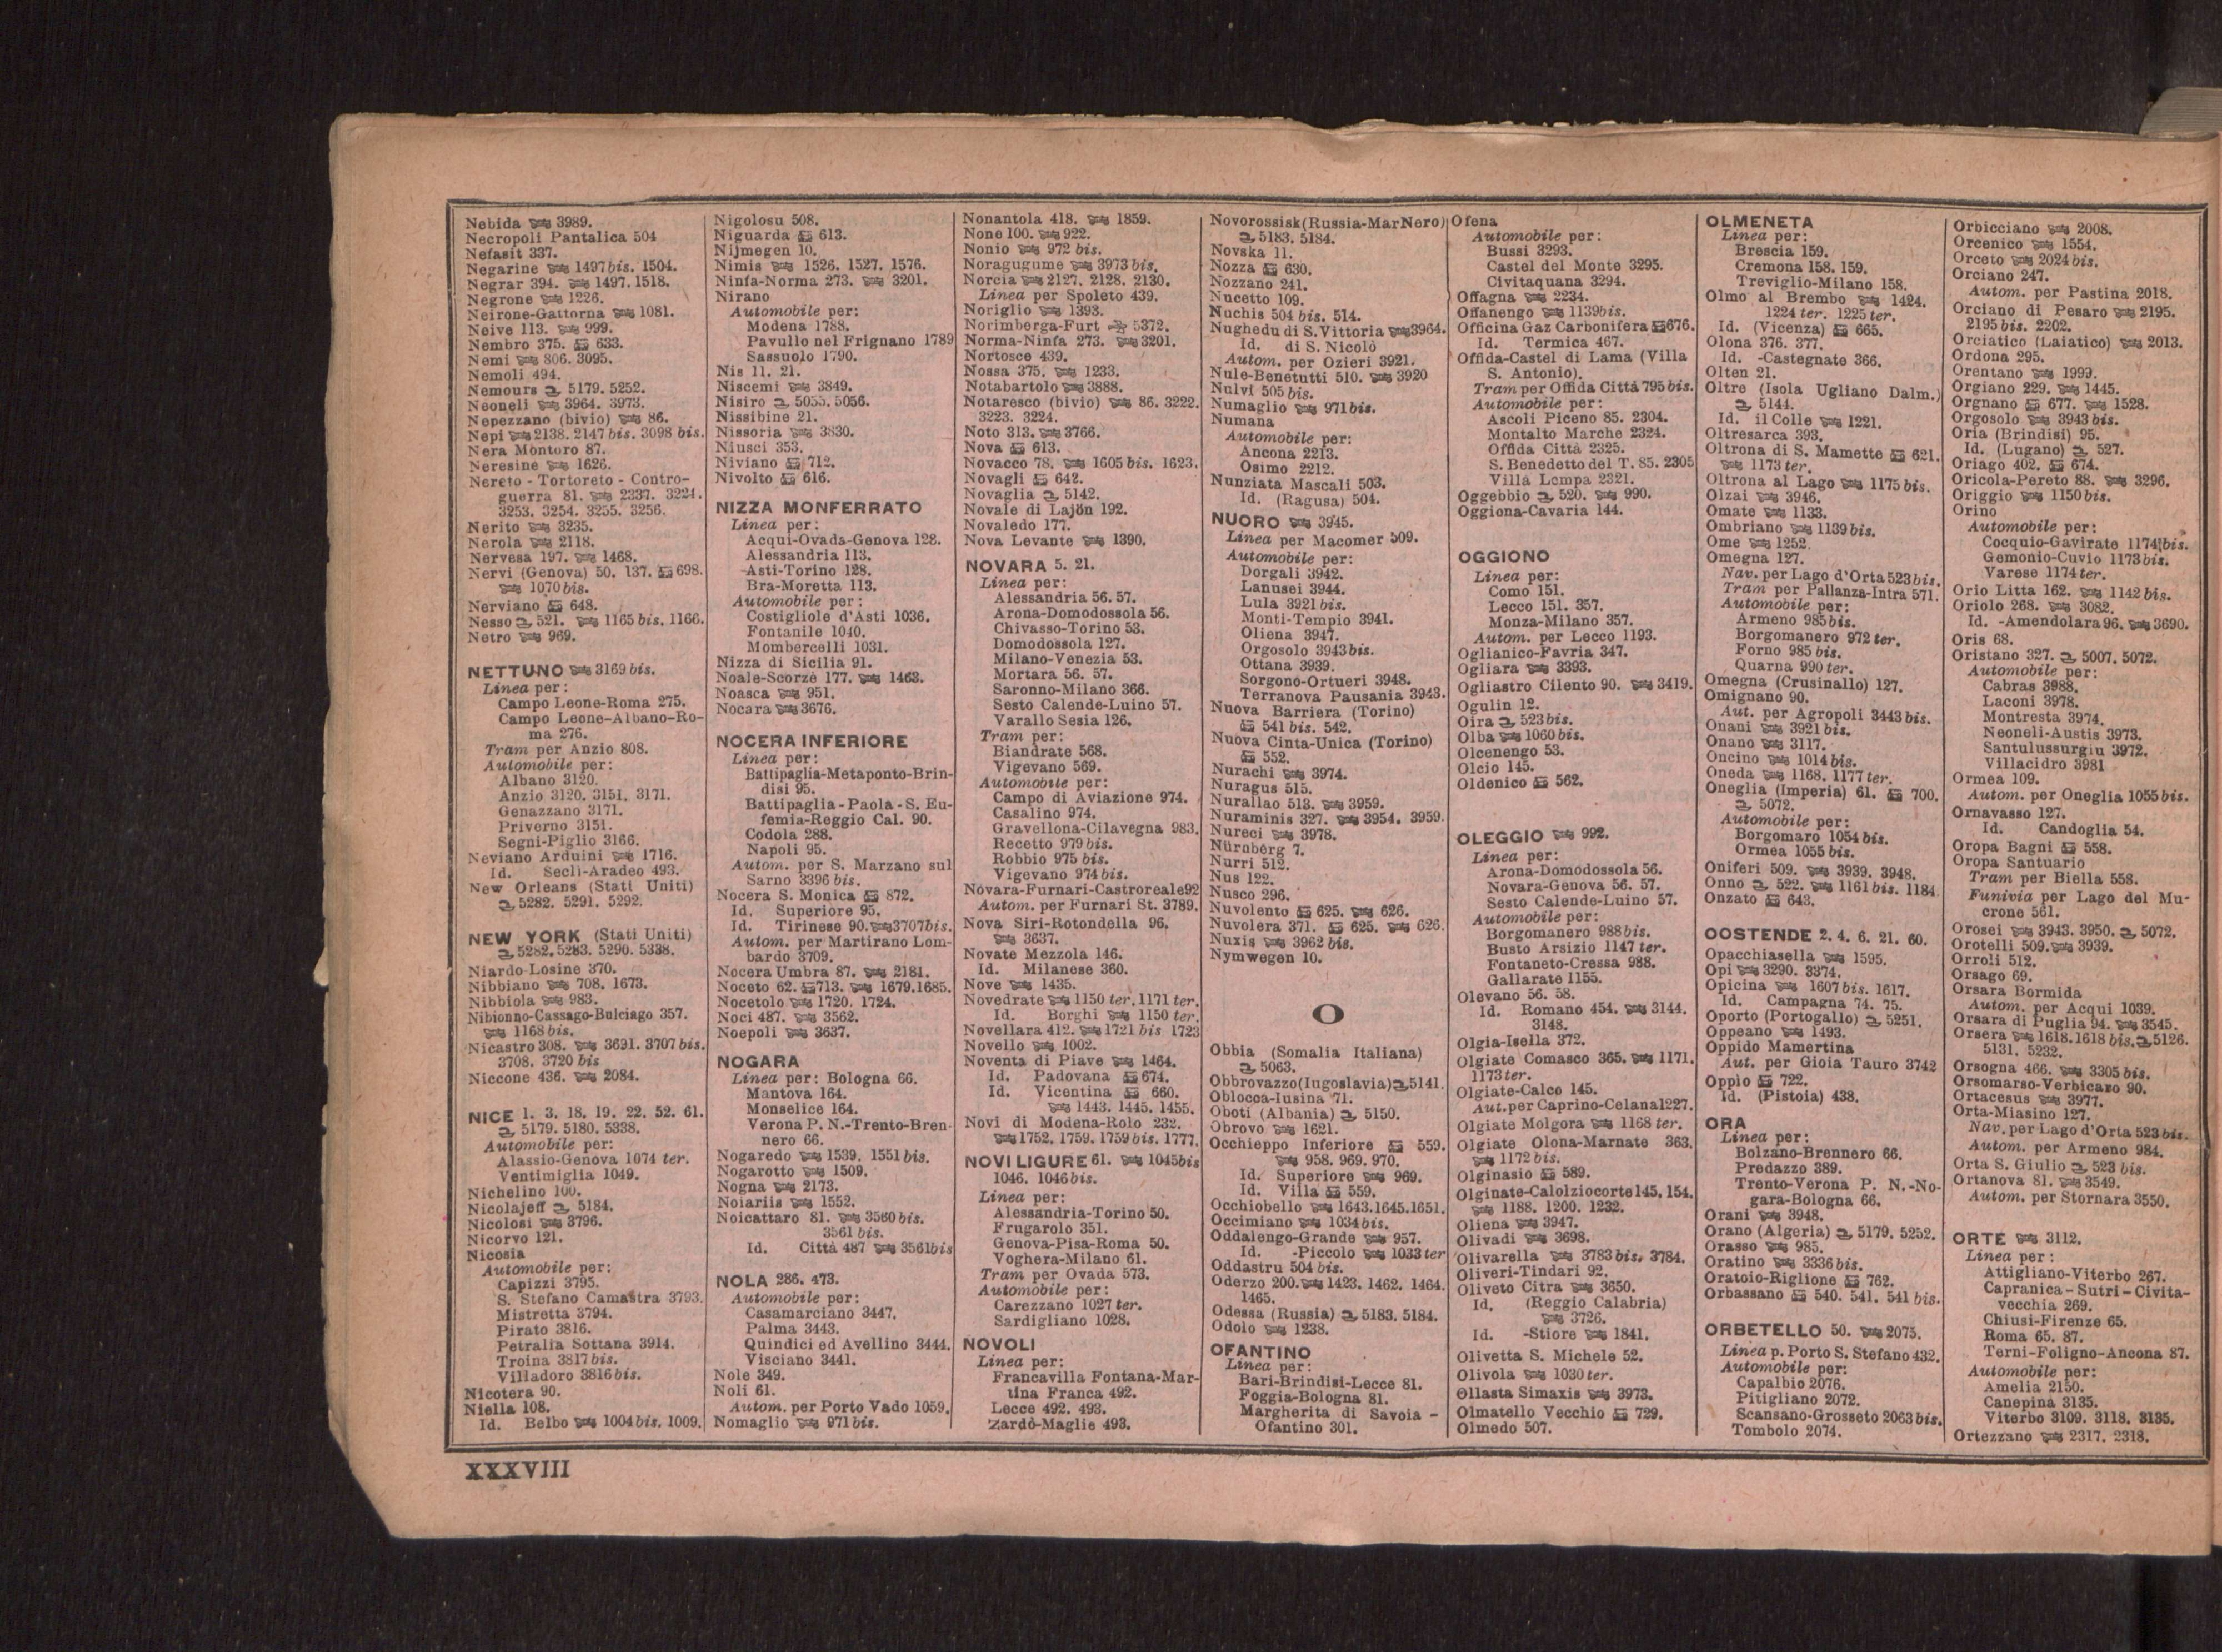 Nebida 3989.
Necropoli Pantalica 504
Nefasit 337.
Negarine 1497 bis. 1504.
Negrar 394. 1497. 1518.
Negrone 1226.
Neirone-Gattorna 1081.
Neive 113. 999.
Nembro 375. 633.
Nemi 806. 3095.
Nemoli 494.
Nemours 5179. 5252.
Neoneli 3964. 3973.
Nepezzano (bivio) 86.
Nepi 2138. 2147 bis. 3098 bis.
Nera Montoro 87.
Neresine 1626.
Nereto - Tortoreto - Contro-
guerra 81. 2337. 3224.
3253. 3254. 3255. 3256.
Nerito 3235.
Nerola 2118.
Nervesa 197. 1468.
Nervi (Genova) 50. 137. 698.
1070 bis.
Nerviano 648.
Nesso 521. 1165 bis. 1166.
Netro 969.
NETTUNO 3169 bis.
Linea per:
Campo Leone-Roma 275.
Campo Leone-Albano-Ro-
ma 276.
Tram per Anzio 808.
Automobile per:
Albano 3120.
Anzio 3120. 3151. 3171.
Genazzano 3171.
Priverno 3151.
Segni-Piglio 3166.
Neviano Arduini 1716.
Id. Secli-Aradeo 493.
New Orleans (Stati Uniti)
5282. 5291. 5292.
NEW YORK (Stati Uniti)
5282. 5283. 5290. 5338.
Niardo Losine 370.
Nibbiano 708. 1673.
Nibbiola 983.
Nibionno-Cassago-Bulciago 357.
1168 bis.
Nicastro 308. 3691. 3707 bis.
3708. 3720 bis
Niccone 436. 2084.
NICE 1. 3. 18. 19. 22. 52. 61.
5179. 5180. 5338.
Automobile per:
Alassio-Genova 1074 ter.
Ventimiglia 1049.
Nichelino 100.
Nicolajeff 5184.
Nicolosi 3796.
Nicorvo 121.
Nicosia
Automobile per:
Capizzi 3795.
S. Stefano Camastra 3793.
Mistretta 3794.
Pirato 3816.
Petralia Sottana 3914.
Troina 3817 bis.
Villadoro 3816 bis.
Nicotera 90.
Niella 108.
Id. Belbo 1004 bis. 1009.
Nigolosu 508.
Niguarda 613.
Nijmegen 10.
Nimis 1526. 1527. 1576.
Ninfa-Norma 273. 3201.
Nirano
Automobile per:
Modena 1788.
Pavullo nel Frignano 1789
Sassuolo 1790.
Nis 11. 21.
Niscemi 3849.
Nisiro 5055. 5056.
Nissibine 21.
Nissoria 3830.
Niusci 353.
Niviano 712.
Nivolto 616.
NIZZA MONFERRATO
Linea per:
Acqui-Ovada-Genova 128.
Alessandria 113.
Asti-Torino 128.
Bra-Moretta 113.
Automobile per:
Costigliole d'Asti 1036.
Fontanile 1040.
Mombercelli 1031.
Nizza di Sicilia 91.
Noale-Scorzè 177. 1463.
Noasca 951.
Nocara 3676.
NOCERA INFERIORE
Linea per:
Battipaglia-Metaponto-Brin-
disi 95.
Battipaglia-Paola-S. Eu-
femia-Reggio Cal. 90.
Codola 288.
Napoli 95.
Autom. per S. Marzano sul
Sarno 3396 bis.
Nocera S. Monica 872.
Id. Superiore 95.
Id. Tirinese 90. 3707bis.
Autom. per Martirano Lom-
bardo 3709.
Nocera Umbra 87. 2181.
Noceto 62. 713. 1679.1685.
Nocetolo 1720. 1724.
Noci 487. 3562.
Noepoli 3637.
NOGARA
Linea per: Bologna 66.
Mantova 164.
Monselice 164.
Verona P. N.-Trento-Bren-
nero 66.
Nogaredo 1539. 1551 bis.
Nogarotto 1509.
Nogna 2173.
Noiariis 1552.
Noicattaro 81. 3560 bis.
3561 bis.
Id. Città 487 3561bis
NOLA 286. 473.
Automobile per:
Casamarciano 3447.
Palma 3443.
Quindici ed Avellino 3444.
Visciano 3441.
Nole 349.
Noli 61.
Autom. per Porto Vado 1059.
Nomaglio 971 bis.
Nonantola 418. 1859.
None 100. 922.
Nonio 972 bis.
Noragugume 3973 bis.
Norcia 2127. 2128. 2130.
Linea per Spoleto 439.
Noriglio 1393.
Norimberga-Furt 5372.
Norma-Ninfa 273. 3201.
Nortosce 439.
Nossa 375. 1233.
Notabartolo 3888.
Notaresco (bivio) 86. 3222.
3223. 3224.
Noto 313. 3766.
Nova 613.
Novacco 78. 1605 bis. 1623.
Novagli 642.
Novaglia 5142.
Novale di Lajön 192.
Novaledo 177.
Nova Levante 1390.
NOVARA 5. 21.
Linea per:
Alessandria 56. 57.
Arona-Domodossola 56.
Chivasso-Torino 53.
Domodossola 127.
Milano-Venezia 53.
Mortara 56. 57.
Saronno-Milano 366.
Sesto Calende-Luino 57.
Varallo Sesia 126.
Tram per:
Biandrate 568.
Vigevano 569.
Automobile per:
Campo di Aviazione 974.
Casalino 974.
Gravellona-Cilavegna 983.
Recetto 979 bis.
Robbio 975 bis.
Vigevano 974 bis.
Novara-Furnari-Castroreale92
Autom. per Furnari St. 3789.
Nova Siri-Rotondella 96.
3637.
Novate Mezzola 146.
Id. Milanese 360.
Nove 1435.
Novedrate 1150 ter. 1171 ter.
Id. Borghi 1150 ter.
Novellara 412. 1721 bis 1723
Novello 1002.
Noventa di Piave 1464.
Id. Padovana 674.
Id. Vicentina 660.
1443. 1445. 1455.
Novi di Modena-Rolo 232.
1752. 1759. 1759 bis. 1777.
NOVI LIGURE 61. 1045bis
1046. 1046 bis.
Linea per:
Alessandria-Torino 50.
Frugarolo 351.
Genova-Pisa-Roma 50.
Voghera-Milano 61.
Tram per Ovada 573.
Automobile per:
Carezzano 1027 ter.
Sardigliano 1028.
NOVOLI
Linea per:
Francavilla Fontana-Mar-
tina Franca 492.
Lecce 492. 493.
Zardò-Maglie 493.
Novorossisk(Russia-MarNero)
5183. 5184.
Novska 11.
Nozza 630.
Nozzano 241.
Nucetto 109.
Nuchis 504 bis. 514.
Nughedu di S. Vittoria 3964.
Id. di S. Nicolò
Autom. per Ozieri 3921.
Nule-Benetutti 510. 3920
Nulvi 505 bis.
Numaglio 971 bis.
Numana
Automobile per:
Ancona 2213.
Osimo 2212.
Nunziata Mascali 503.
Id. (Ragusa) 504.
NUORO 3945.
Linea per Macomer 509.
Automobile per:
Dorgali 3942.
Lanusei 3944.
Lula 3921 bis.
Monti-Tempio 3941.
Oliena 3947.
Orgosolo 3943 bis.
Ottana 3939.
Sorgono-Ortueri 3948.
Terranova Pausania 3943.
Nuova Barriera (Torino)
541 bis. 542.
Nuova Cinta-Unica (Torino)
552.
Nurachi 3974.
Nuragus 515.
Nurallao 513. 3959.
Nuraminis 327. 3954. 3959.
Nureci 3978.
Nürnberg 7.
Nurri 512.
Nus 122.
Nusco 296.
Nuvolento 625. 626.
Nuvolera 371. 625. 626.
Nuxis 3962 bis.
Nymwegen 10.
O
Obbia (Somalia Italiana)
5063.
Obbrovazzo(Iugoslavia) 5141.
Oblocca-Iusina 71.
Oboti (Albania) 5150.
Obrovo 1621.
Occhieppo Inferiore 559.
958. 969. 970.
Id. Superiore 969.
Id. Villa 559.
Occhiobello 1643.1645.1651.
Occimiano 1034 bis.
Oddalengo-Grande 957.
Id. -Piccolo 1033 ter
Oddastru 504 bis.
Oderzo 200. 1423. 1462. 1464.
1465.
Odessa (Russia) 5183. 5184.
Odolo 1238.
OFANTINO
Linea per:
Bari-Brindisi-Lecce 81.
Foggia-Bologna 81.
Margherita di Savoia -
Ofantino 301.
Ofena
Automobile per:
Bussi 3293.
Castel del Monte 3295.
Civitaquana 3294.
Offagna 2234.
Offanengo 1139bis.
Officina Gaz Carbonifera 676.
Id. Termica 467.
Offida-Castel di Lama (Villa
S. Antonio).
Tram per Offida Città 795 bis.
Automobile per:
Ascoli Piceno 85. 2304.
Montalto Marche 2324.
Offida Città 2325.
S. Benedetto del T. 85. 2305
Villa Lempa 2321.
Oggebbio 520. 990.
Oggiona-Cavaria 144.
OGGIONO
Linea per:
Como 151.
Lecco 151. 357.
Monza-Milano 357.
Autom. per Lecco 1193.
Oglianico-Favria 347.
Ogliara 3393.
Ogliastro Cilento 90. 3419.
Ogulin 12.
Oira 523 bis.
Olba 1060 bis.
Olcenengo 53.
Olcio 145.
Oldenico 562.
OLEGGIO 992.
Linea per:
Arona-Domodossola 56.
Novara-Genova 56. 57.
Sesto Calende-Luino 57.
Automobile per:
Borgomanero 988 bis.
Busto Arsizio 1147 ter.
Fontaneto-Cressa 988.
Gallarate 1155.
Olevano 56. 58.
Id. Romano 454. 3144.
3148.
Olgia-Isella 372.
Olgiate Comasco 365. 1171.
1173 ter.
Olgiate-Calco 145.
Aut. per Caprino-Celana1227.
Olgiate Molgora 1168 ter.
Olgiate Olona-Marnate 363.
1172 bis.
Olginasio 589.
Olginate-Calolziocorte145. 154.
1188. 1200. 1232.
Oliena 3947.
Olivadi 3698.
Olivarella 3783 bis. 3784.
Oliveri-Tindari 92.
Oliveto Citra 3650.
Id. (Reggio Calabria)
3726.
Id. -Stiore 1841.
Olivetta S. Michele 52.
Olivola 1030 ter.
Ollasta Simaxis 3973.
Olmatello Vecchio 729.
Olmedo 507.
OLMENETA
Linea per:
Brescia 159.
Cremona 158. 159.
Treviglio-Milano 158.
Olmo al Brembo 1424.
1224 ter. 1225 ter.
Id. (Vicenza) 665.
Olona 376. 377.
Id. -Castegnate 366.
Olten 21.
Oltre (Isola Ugliano Dalm.)
5144.
Id. il Colle 1221.
Oltresarca 393.
Oltrona di S. Mamette 621.
1173 ter.
Oltrona al Lago 1175 bis.
Olzai 3946.
Omate 1133.
Ombriano 1139 bis.
Ome 1252.
Omegna 127.
Nav. per Lago d'Orta 523 bis.
Tram per Pallanza-Intra 571.
Automobile per:
Armeno 985 bis.
Borgomanero 972 ter.
Forno 985 bis.
Quarna 990 ter.
Omegna (Crusinallo) 127.
Omignano 90.
Aut. per Agropoli 3443 bis.
Onani 3921 bis.
Onano 3117.
Oncino 1014 bis.
Oneda 1168. 1177 ter.
Oneglia (Imperia) 61. 700.
5072.
Automobile per:
Borgomaro 1054 bis.
Ormea 1055 bis.
Oniferi 509. 3939. 3948.
Onno 522. 1161 bis. 1184.
Onzato 643.
OOSTENDE 2. 4. 6. 21. 60.
Opacchiasella 1595.
Opi 3290. 3374.
Opicina 1607 bis. 1617.
Id. Campagna 74. 75.
Oporto (Portogallo) 5251.
Oppeano 1493.
Oppido Mamertina
Aut. per Gioia Tauro 3742
Oppio 722.
Id. (Pistoia) 438.
ORA
Linea per:
Bolzano-Brennero 66.
Predazzo 389.
Trento-Verona P. N.-No-
gara-Bologna 66.
Orani 3948.
Orano (Algeria) 5179. 5252.
Orasso 985.
Oratino 3336 bis.
Oratoio-Riglione 762.
Orbassano 540. 541. 541 bis.
ORBETELLO 50. 2075.
Linea p. Porto S. Stefano 432.
Automobile per:
Capalbio 2076.
Pitigliano 2072.
Scansano-Grosseto 2063 bis.
Tombolo 2074.
Orbicciano 2008.
Orcenico 1554.
Orceto 2024 bis.
Orciano 247.
Autom. per Pastina 2018.
Orciano di Pesaro 2195.
2195 bis. 2202.
Orciatico (Laiatico) 2013.
Ordona 295.
Orentano 1999.
Orgiano 229. 1445.
Orgnano 677. 1528.
Orgosolo 3943 bis.
Oria (Brindisi) 95.
Id. (Lugano) 527.
Oriago 402. 674.
Oricola-Pereto 88. 3296.
Origgio 1150 bis.
Orino
Automobile per:
Cocquio-Gavirate 1174 bis.
Gemonio-Cuvio 1173 bis.
Varese 1174 ter.
Orio Litta 162. 1142 bis.
Oriolo 268. 3082.
Id. -Amendolara 96. 3690.
Oris 68.
Oristano 327. 5007. 5072.
Automobile per:
Cabras 3988.
Laconi 3978.
Montresta 3974.
Neoneli-Austis 3973.
Santulussurgiu 3972.
Villacidro 3981
Ormea 109.
Autom. per Oneglia 1055 bis.
Ornavasso 127.
Id. Candoglia 54.
Oropa Bagni 558.
Oropa Santuario
Tram per Biella 558.
Funivia per Lago del Mu-
crone 561.
Orosei 3943. 3950. 5072.
Orotelli 509. 3939.
Orroli 512.
Orsago 69.
Orsara Bormida
Autom. per Acqui 1039.
Orsara di Puglia 94. 3545.
Orsera 1618.1618 bis. 5126.
5131. 5232.
Orsogna 466. 3305 bis.
Orsomarso-Verbicaro 90.
Ortacesus 3977.
Orta-Miasino 127.
Nav. per Lago d'Orta 523 bis.
Autom. per Armeno 984.
Orta S. Giulio 523 bis.
Ortanova 81. 3549.
Autom. per Stornara 3550.
ORTE 3112.
Linea per:
Attigliano-Viterbo 267.
Capranica-Sutri-Civita-
vecchia 269.
Chiusi-Firenze 65.
Roma 65. 87.
Terni-Foligno-Ancona 87.
Automobile per:
Amelia 2150.
Canepina 3135.
Viterbo 3109. 3118. 3135.
Ortezzano 2317. 2318.
XXXVIII